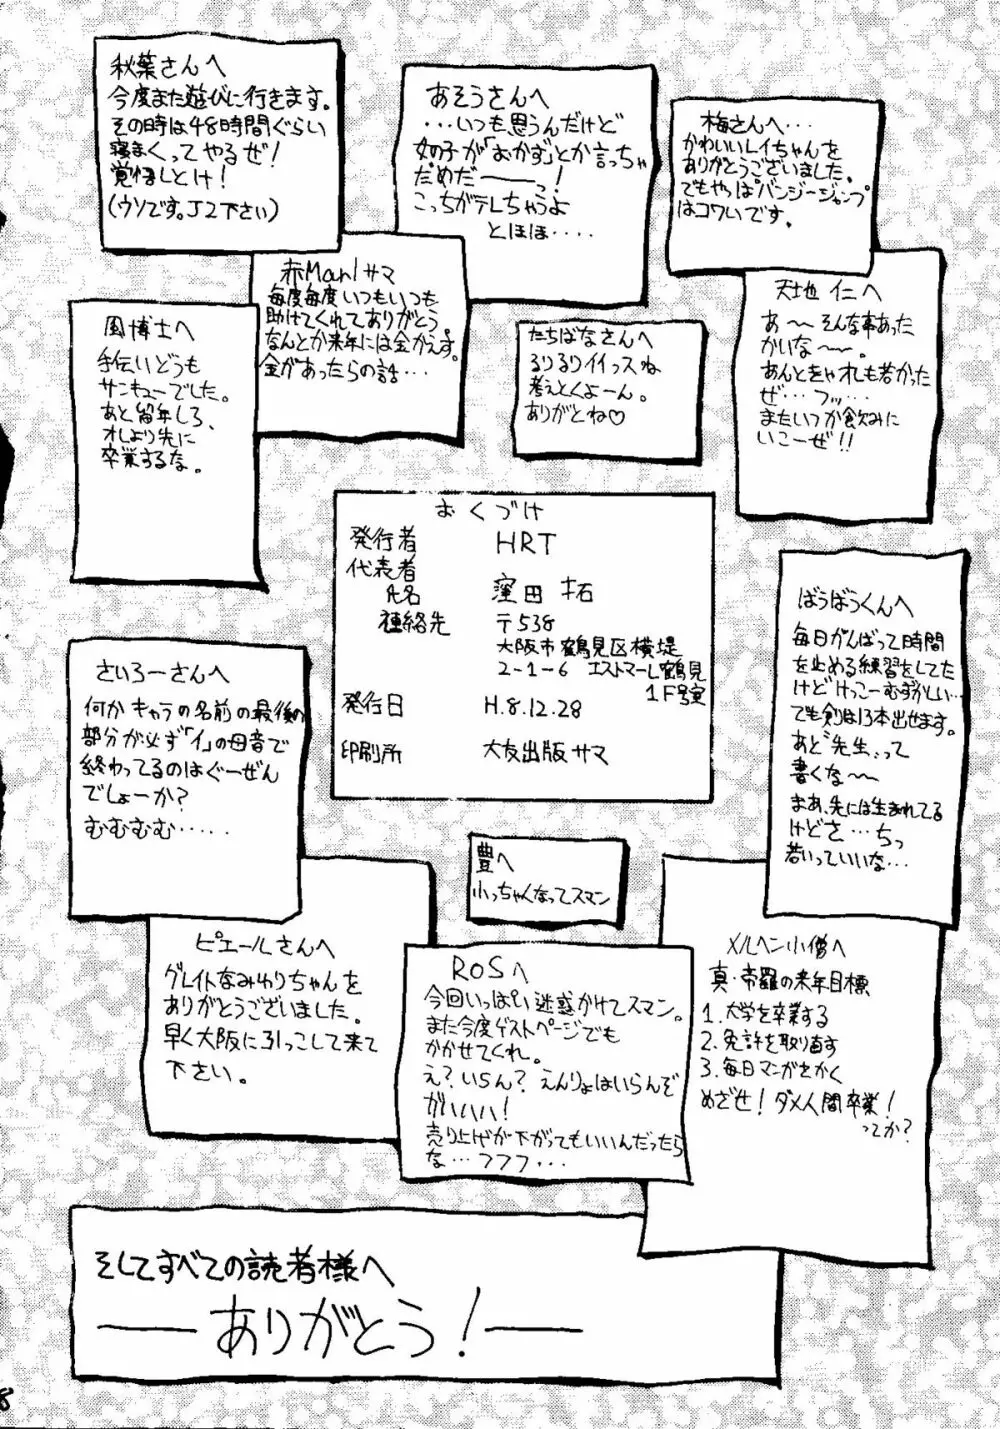 秋葉さんへ
今度また遊びに行きます。
その時は48時間ぐらい
寝まくってやるぜ!
覚悟しとけ!
(ウソです。J2下さい)
あそうさんへ
・・・いつも思うんだけど
女の子が「おかず」とか言っちゃ
だめだ――っ!
こっちがテレちゃうよ
とほほ・・・・
梅さんへ・・・
かわいいレイちゃんを
ありがとうございました。
でもやっぱバンジージャンプ
はコワいです。
赤Marlサマ
毎度毎度いつもいつも
助けてくれてありがとう
なんとか来年には金かえす。
金があったらの話・・・
天地 仁へ
あ〜〜そんな事あった
かいな〜〜。
あんときゃオレも若かった
ぜ・・・フッ・・・
またいつか飲みに
いこーぜ!!
風博士へ
手伝いどうも
サンキューでした。
あと留年しろ、
オレより先に
卒業するな。
たちばなさんへ
るりるりイイっスね
考えとくよーん。
ありがとね♡
おくづけ
発行者 HRT
代表者
氏名 窪田 拓
連絡先 〒538
大阪市鶴見区横堤
2-1-6 エストマーレ鶴見
1F号室
発行日 H.8.12.28
印刷所 大友出版サマ
ばうばうくんへ
毎日がんばって時間
を止める練習をしてた
けどけっこーむずかしい…
でも剣は13本出せます。
あと〝先生〟って
書くな〜〜
まあ、先には生まれてる
けどさ・・・ちっ
若いっていいな・・・
さいろーさんへ
何かキャラの名前の最後の
部分が必ず「イ」の母音で
終わってるのはぐーぜん
でしょーか?
むむむむ・・・・・
豊へ
小っちゃくなってスマン
ピエールさんへ
グレイトなみゆりちゃんを
ありがとうございました。
早く大阪に引っこして来て
下さい。
ROSへ
今回いっぱい迷惑かけてスマン。
また今度ゲストページでも
かかせてくれ。
え?いらん?えんりょはいらんぞ
ガハハハ!
売り上げが下がってもいいんだったら
な・・・フフフ・・・
メルヘン小僧へ
真・帝羅の来年目標
1.大学を卒業する
2.免許を取り直す
3.毎日マンガをかく
めざせ!ダメ人間卒業!
ってか?
そしてすべての読者様へ
――ありがとう!――
8